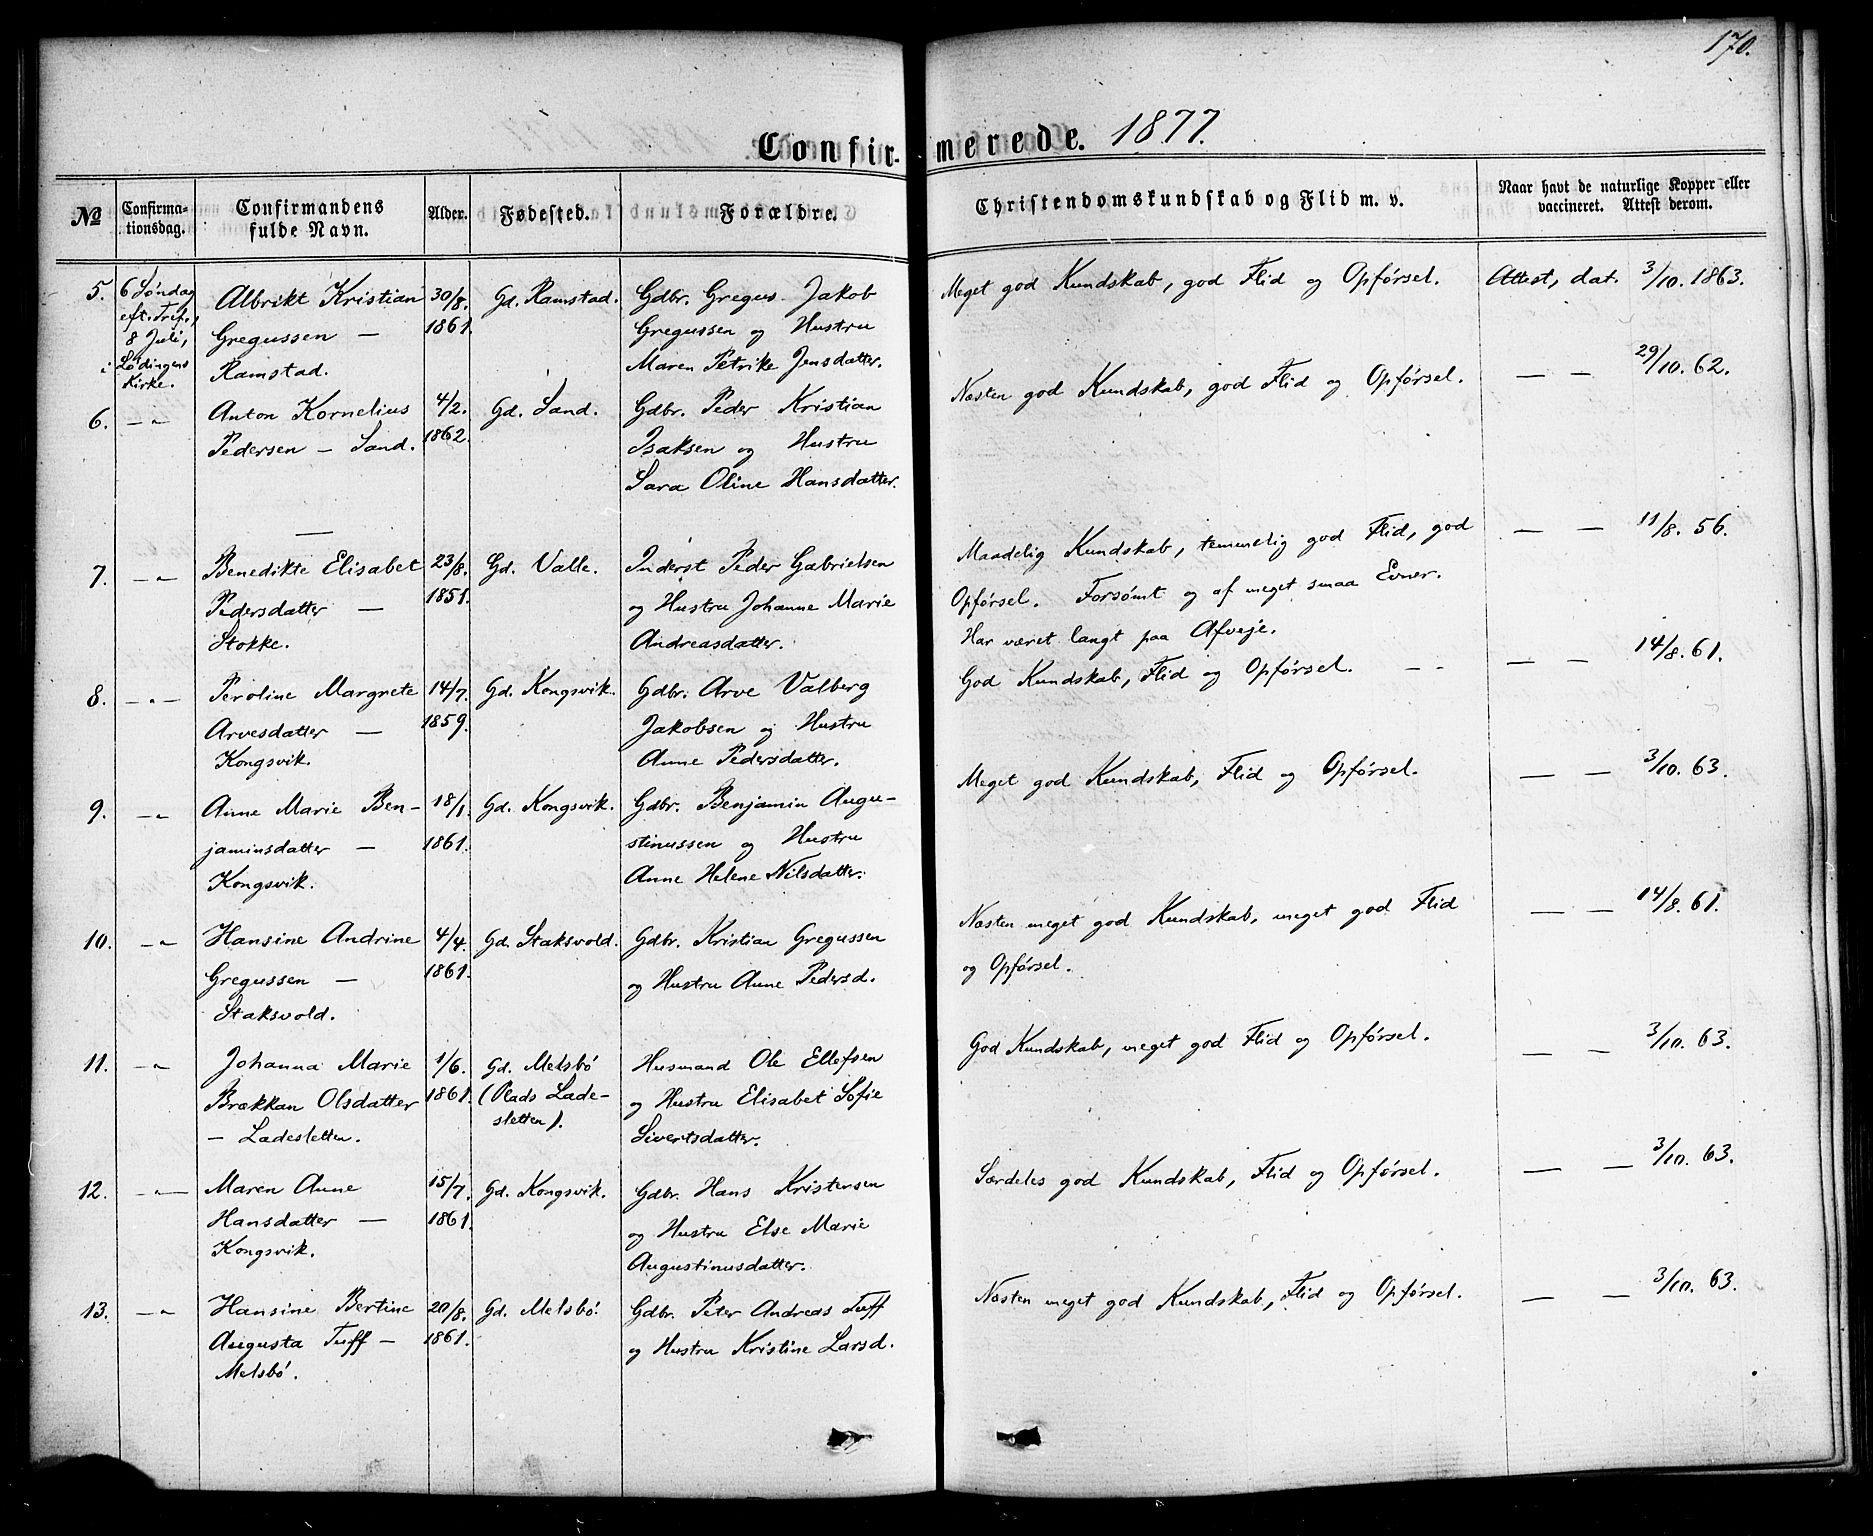 170.
Confirmerede. 1877.
No
Confirmationsdag.
Confirmandens fulde Navn.
Alder.
Fødested.
Forældre.
Christendomskundskab og Flid m. v.
Naar havt de naturlige Kopper eller vaccineret. Attest derom.
5.
6 Søndag
eft. Tref.,
8 Juli,
i Lødingens
Kirke.
Albrikt Kristian
Gregussen —
Ramstad.
30/8.
1861.
Gd. Ramstad.
Gdbr. Gregus Jakob
Gregussen og Hustru
Maren Petrike Jensdatter.
Meget god Kundskab, god Flid og Opførsel.
Attest, dat. 3/10. 1863.
6.
—„—
Anton Kornelius
Pedersen — Sand.
4/2.
1862.
Gd. Sand.
Gdbr. Peder Kristian
Isaksen og Hustru
Sara Oline Hansdatter.
Næsten god Kundskab, god Flid og Opførsel.
— — 29/10. 62.
—
7.
—„
Benedikte Elisabet
Pedersdatter —
Stokke.
23/8.
1851.
Gd. Valle.
Inderst Peder Gabrielsen
og Hustru Johanne Marie
Andreasdatter.
Maadelig Kundskab, temmelig god Flid, god
Opførsel. Forsømt og af meget smaa Evner.
Har været langt paa Afveje.
— — 11/8. 56.
8.
—„—
Peroline Margrete
Arvesdatter —
Kongsvik.
14/7.
1859.
Gd. Kongsvik.
Gdbr. Arve Valberg
Jakobsen og Hustru
Anne Pedersdatter.
God Kundskab, Flid og Opførsel. - -
— — 14/8. 61.
9.
—„
Anne Marie Ben-
jaminsdatter —
Kongsvik.
18/1.
1861.
Gd. Kongsvik.
Gdbr. Benjamin Augu-
stinussen og Hustru
Anne Helene Nilsdatter.
Meget god Kundskab, Flid og Opførsel.
— — 3/10. 63.
10.
—„
Hansine Andrine
Gregussen —
Staksvold.
4/4.
1861.
Gd. Staksvold.
Gdbr. Kristian Gregussen
og Hustru Anne Pedersd.
Næsten meget god Kundskab, meget god Flid
og Opførsel.
— — 14/8. 61.
11.
—„
Johanna Marie
Brækkan Olsdatter
— Ladesletten.
1/6.
1861.
Gd. Melsbö
(Plads Lade-
sletten).
Husmand Ole Ellefsen
og Hustru Elisabet Sofie
Sivertsdatter.
God Kundskab, meget god Flid og Opførsel.
— — 3/10. 63.
12.
—„—
Maren Anne
Hansdatter —
Kongsvik.
15/7.
1861.
Gd. Kongsvik.
Gdbr. Hans Kristensen
og Hustru Else Marie
Augustinusdatter.
Særdeles god Kundskab, Flid og Opførsel.
— — 3/10. 63.
13.
—„
Hansine Bertine
Augusta Tuff —
Melsbö.
20/8.
1861.
Gd. Melsbö.
Gdbr. Peter Andreas Tuff
og Hustru Kristine Larsd.
Næsten meget god Kundskab, Flid og Opførsel.
— — 3/10. 63.